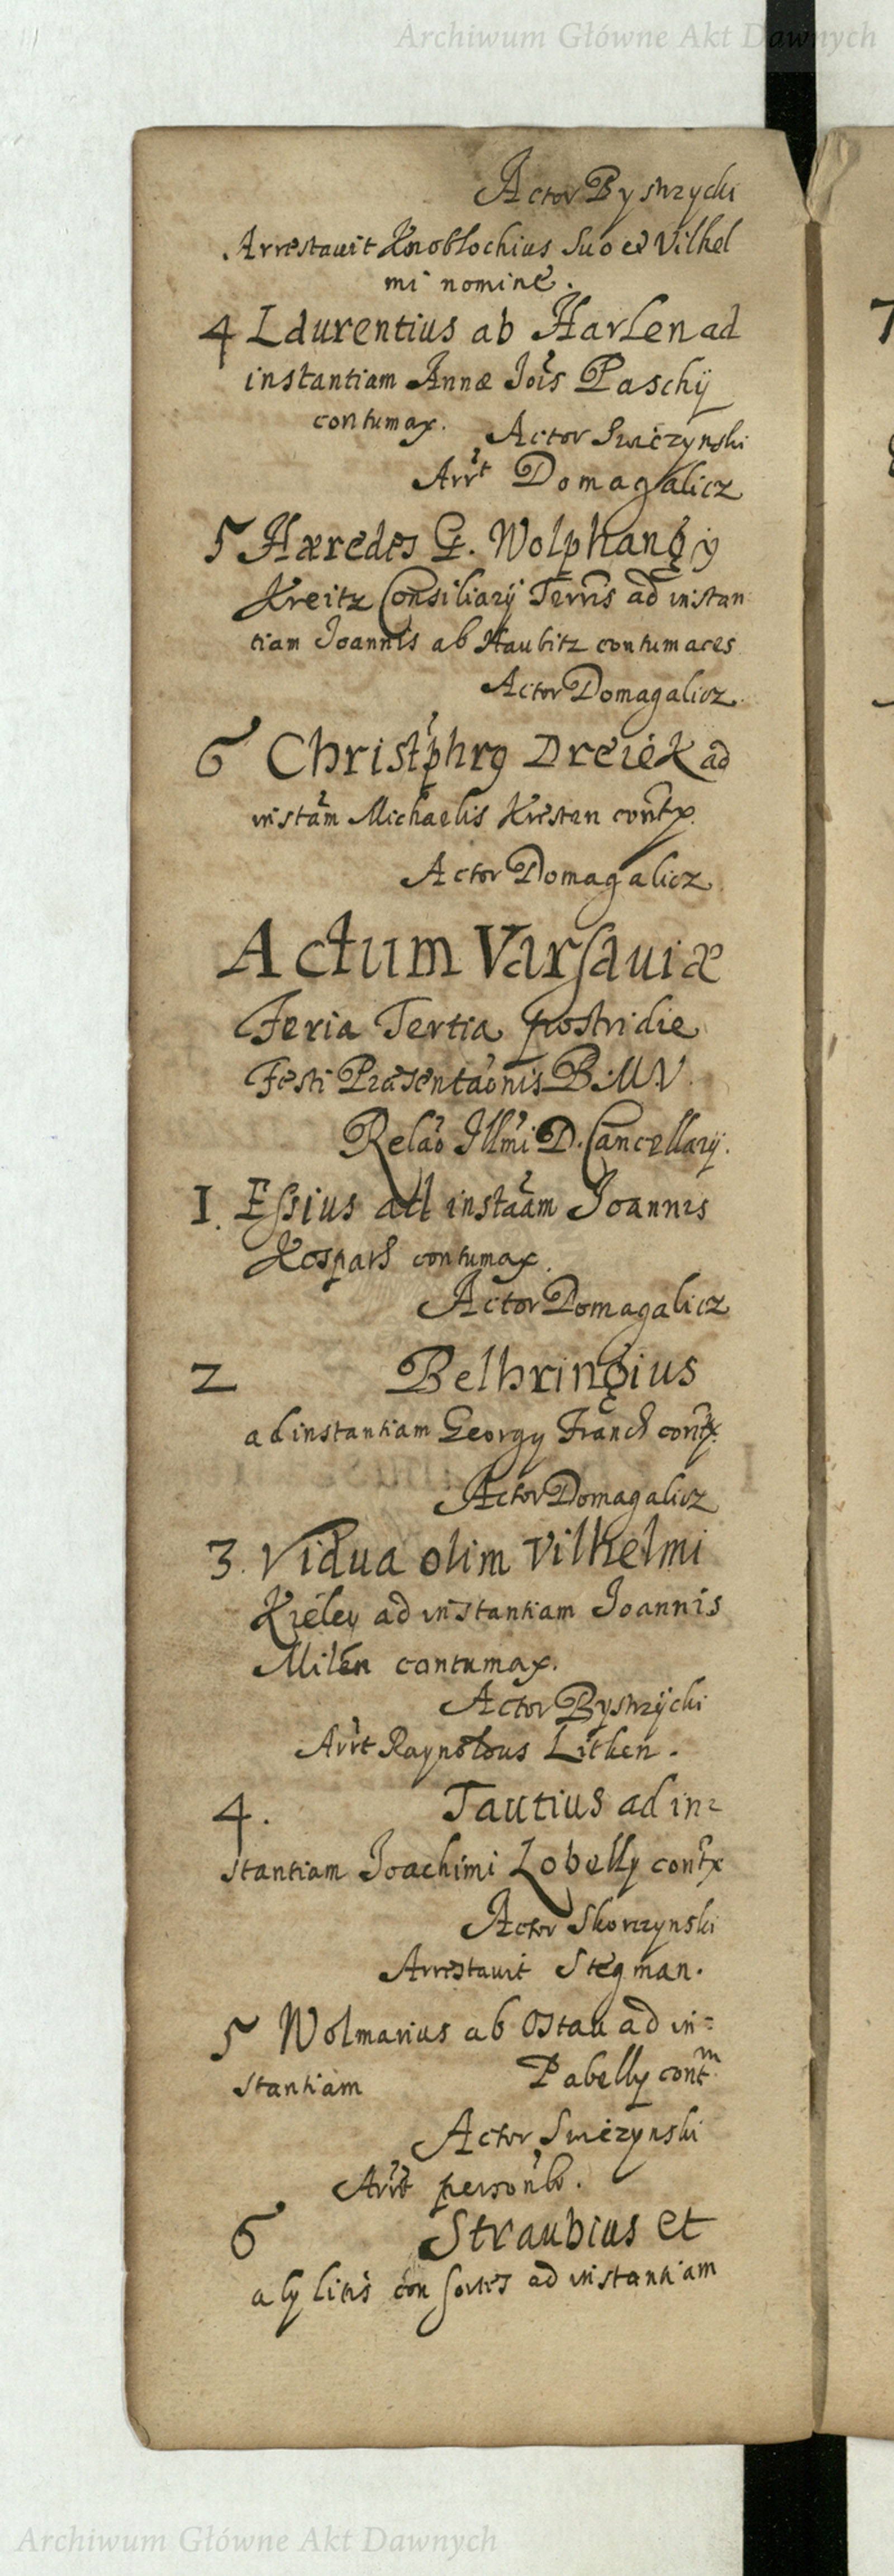 Archiwum Główne Akt Dawnych
Actor Bystrzycki
Arrestauit Knoblochius Suo et Vilhel
mi nomine.
4 Laurentius ab Harlen ad
instantiam Annæ Jois Paschÿ
contumax. Actor Swiczynski
Arrt Domagalicz
5 Hæredes G. Wolphangÿ
Kreitz Consiliarÿ Terris ad instan
tiam Joannis ab Haubitz contumaces
Actor Domagalicz
6 Christphrg Dreiek ad
instam Michaelis Kirsten contx
Actor Domagalicz
Actum Varsauiæ
Feria Tertia postridie
Festi Præsentaonis B.M.V.
Relao Illmi D. Cancellarÿ.
1. Essius ad instaam Joannis
contumax.
Actor Domagalicz
2 Belhringius
ad instantiam Georgy Franck contx
Actor Domagalicz
3. Vidua olim Vilhelmi
ad instantiam Joannis
Milen contumax.
Actor Bystrzÿcki
Arrt Raynoldus Litken.
4. Tautius ad in=
stantiam Joachimi Lobelly contx
Actor Skorzynski
Arrestauit Stegman.
5 Wolmarius ab Ostau ad in=
stantiam Pabelly contm
Actor Swiczynski
Arrt personlr.
6 Straubius et
aly litis consortes ad instantiam
Archiwum Główne Akt Dawnych